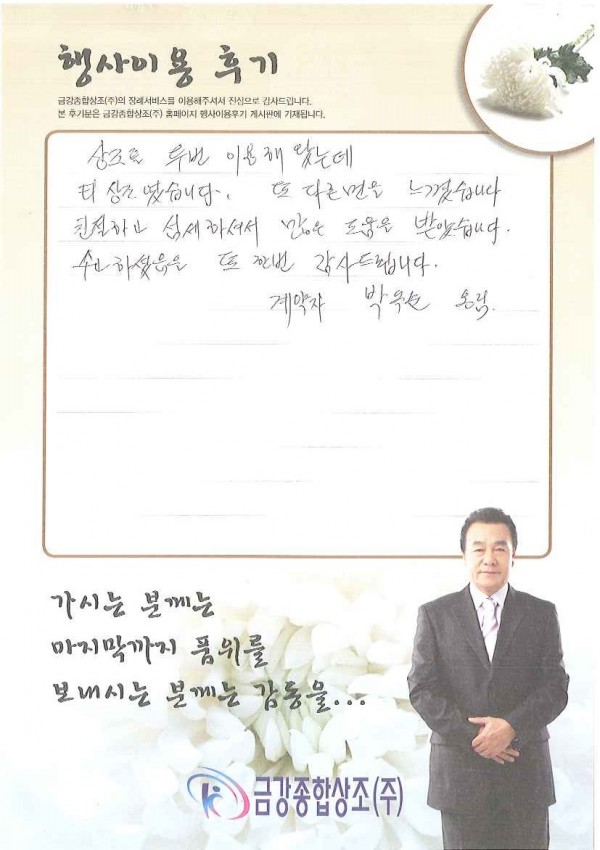 행사이용 후기
금강종합상조(주)의 장례서비스를 이용해주셔서 진심으로 감사드립니다.
본 후기분은 금강종합상조(주) 홈페이지 행사이용후기 게시판에 기재됩니다.
상조로 두번 이용해 왔는데
타 상조였습니다. 또 다른면을 느꼈습니다
친절하고 섬세하셔서 많은 도움을 받았습니다.
수고하셨음을 또 한번 감사드립니다.
계약자 박
가시는 분께는
마지막까지 품위를
보내시는 분께는 감동을...
금강종합상조(주)